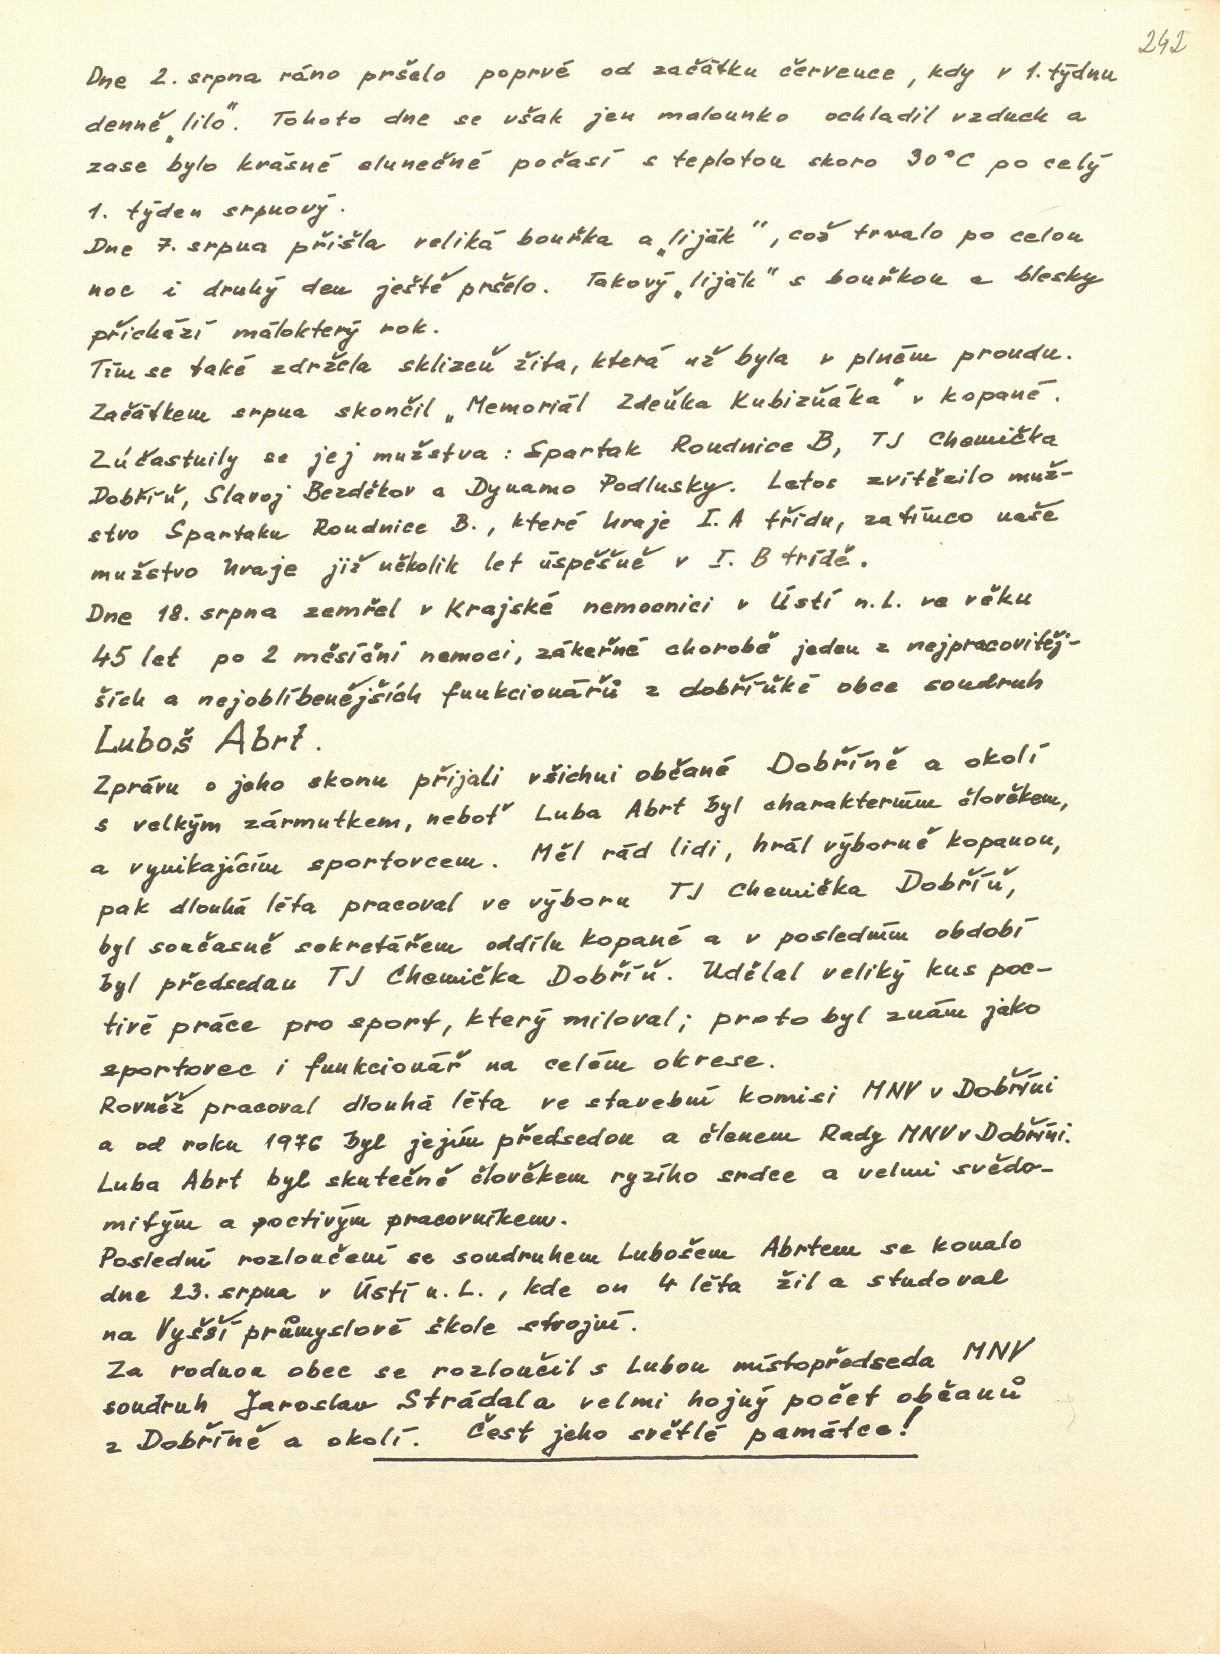 242
Dne 2. srpna ráno pršelo poprvé od začátku července, kdy v 1. týdnu
denně „lilo". Tohoto dne se však jen malounko ochladil vzduch a
zase bylo krásné slunečné počasí s teplotou skoro 30°C po celý
1. týden srpnový.
Dne 7. srpna přišla veliká bouřka a „liják", což trvalo po celou
noc i druhý den ještě pršelo. Takový „liják" s bouřkou a blesky
přichází málokterý rok.
Tím se také zdržela sklizeň žita, která už byla v plném proudu.
Začátkem srpna skončil „Memoriál Zdeňka Kubizňáka" v kopané.
Zúčastnily se jej mužstva: Spartak Roudnice B, TJ Chemička
Dobříň, Slavoj Bezděkov a Dynamo Podlusky. Letos zvítězilo muž-
stvo Spartaku Roudnice B., které hraje I. A třídu, zatímco naše
mužstvo hraje již několik let úspěšně v I. B třídě.
Dne 18. srpna zemřel v Krajské nemocnici v Ústí n.L. ve věku
45 let po 2 měsíční nemoci, zákeřné chorobě jeden z nejpracovitěj-
ších a nejoblíbenějších funkcionářů z dobříňké obce soudruh
Luboš Abrt.
Zprávu o jeho skonu přijali všichni občané Dobříně a okolí
s velkým zármutkem, neboť Luba Abrt byl charakterním člověkem,
a vynikajícím sportovcem. Měl rád lidi, hrál výborně kopanou,
pak dlouhá léta pracoval ve výboru TJ Chemička Dobříň,
byl současně sekretářem oddílu kopané a v posledním období
byl předsedau TJ Chemička Dobříň. Udělal veliký kus poc-
tivé práce pro sport, který miloval; proto byl znám jako
sportovec i funkcionář na celém okrese.
Rovněž pracoval dlouhá léta ve stavební komisi MNV v Dobříni
a od roku 1976 byl jejím předsedou a členem Rady MNV v Dobříni.
Luba Abrt byl skutečně člověkem ryzího srdce a velmi svědo-
mitým a poctivým pracovníkem.
Poslední rozloučení se soudruhem Lubošem Abrtem se konalo
dne 23. srpna v Ústí n. L., kde on 4 léta žil a studoval
na Vyšší průmyslové škole strojní.
Za rodnou obec se rozloučil s Lubou místopředseda MNV
soudruh Jaroslav Strádal a velmi hojný počet občanů
z Dobříně a okolí. Čest jeho světlé památce!